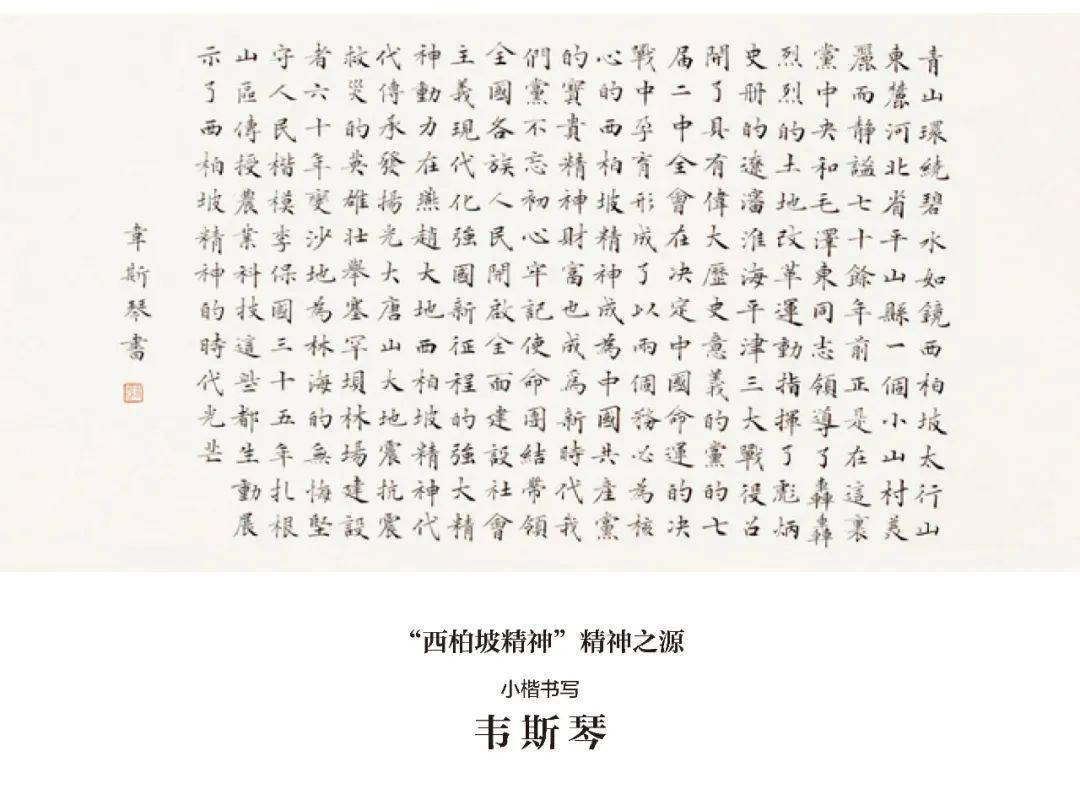 青山環繞碧水如鏡西柏坡太行山
東麓河北省平山縣一個小山村美
麗而静謐七十餘年前正是在這裏
黨中央和毛澤東同志領導了轟轟
烈烈的土地改革運動指揮了彪炳
史册的遼瀋淮海平津三大戰役召
開了具有偉大歷史意義的黨的七
届二中全會在决定中國命運的决
戰中孕育形成了以兩個務必為核
心的西柏坡精神成為中國共產黨
的寶貴精神財富也成為新時代我
們黨不忘初心牢記使命團結帶領
全國各族人民開啟全面建設社會
主義現代化強國新征程的強大精
神動力在燕趙大地西柏坡精神代
代傳承發揚光大唐山大地震抗震
救災的英雄壯舉塞罕壩林場建設
者六十年變沙地為林海的無悔堅
守人民楷模李保國三十五年扎根
山區傳授農業科技這些都生動展
示了西柏坡精神的時代光芒
韋斯琴書
“西柏坡精神”精神之源
小楷书写
韦斯琴